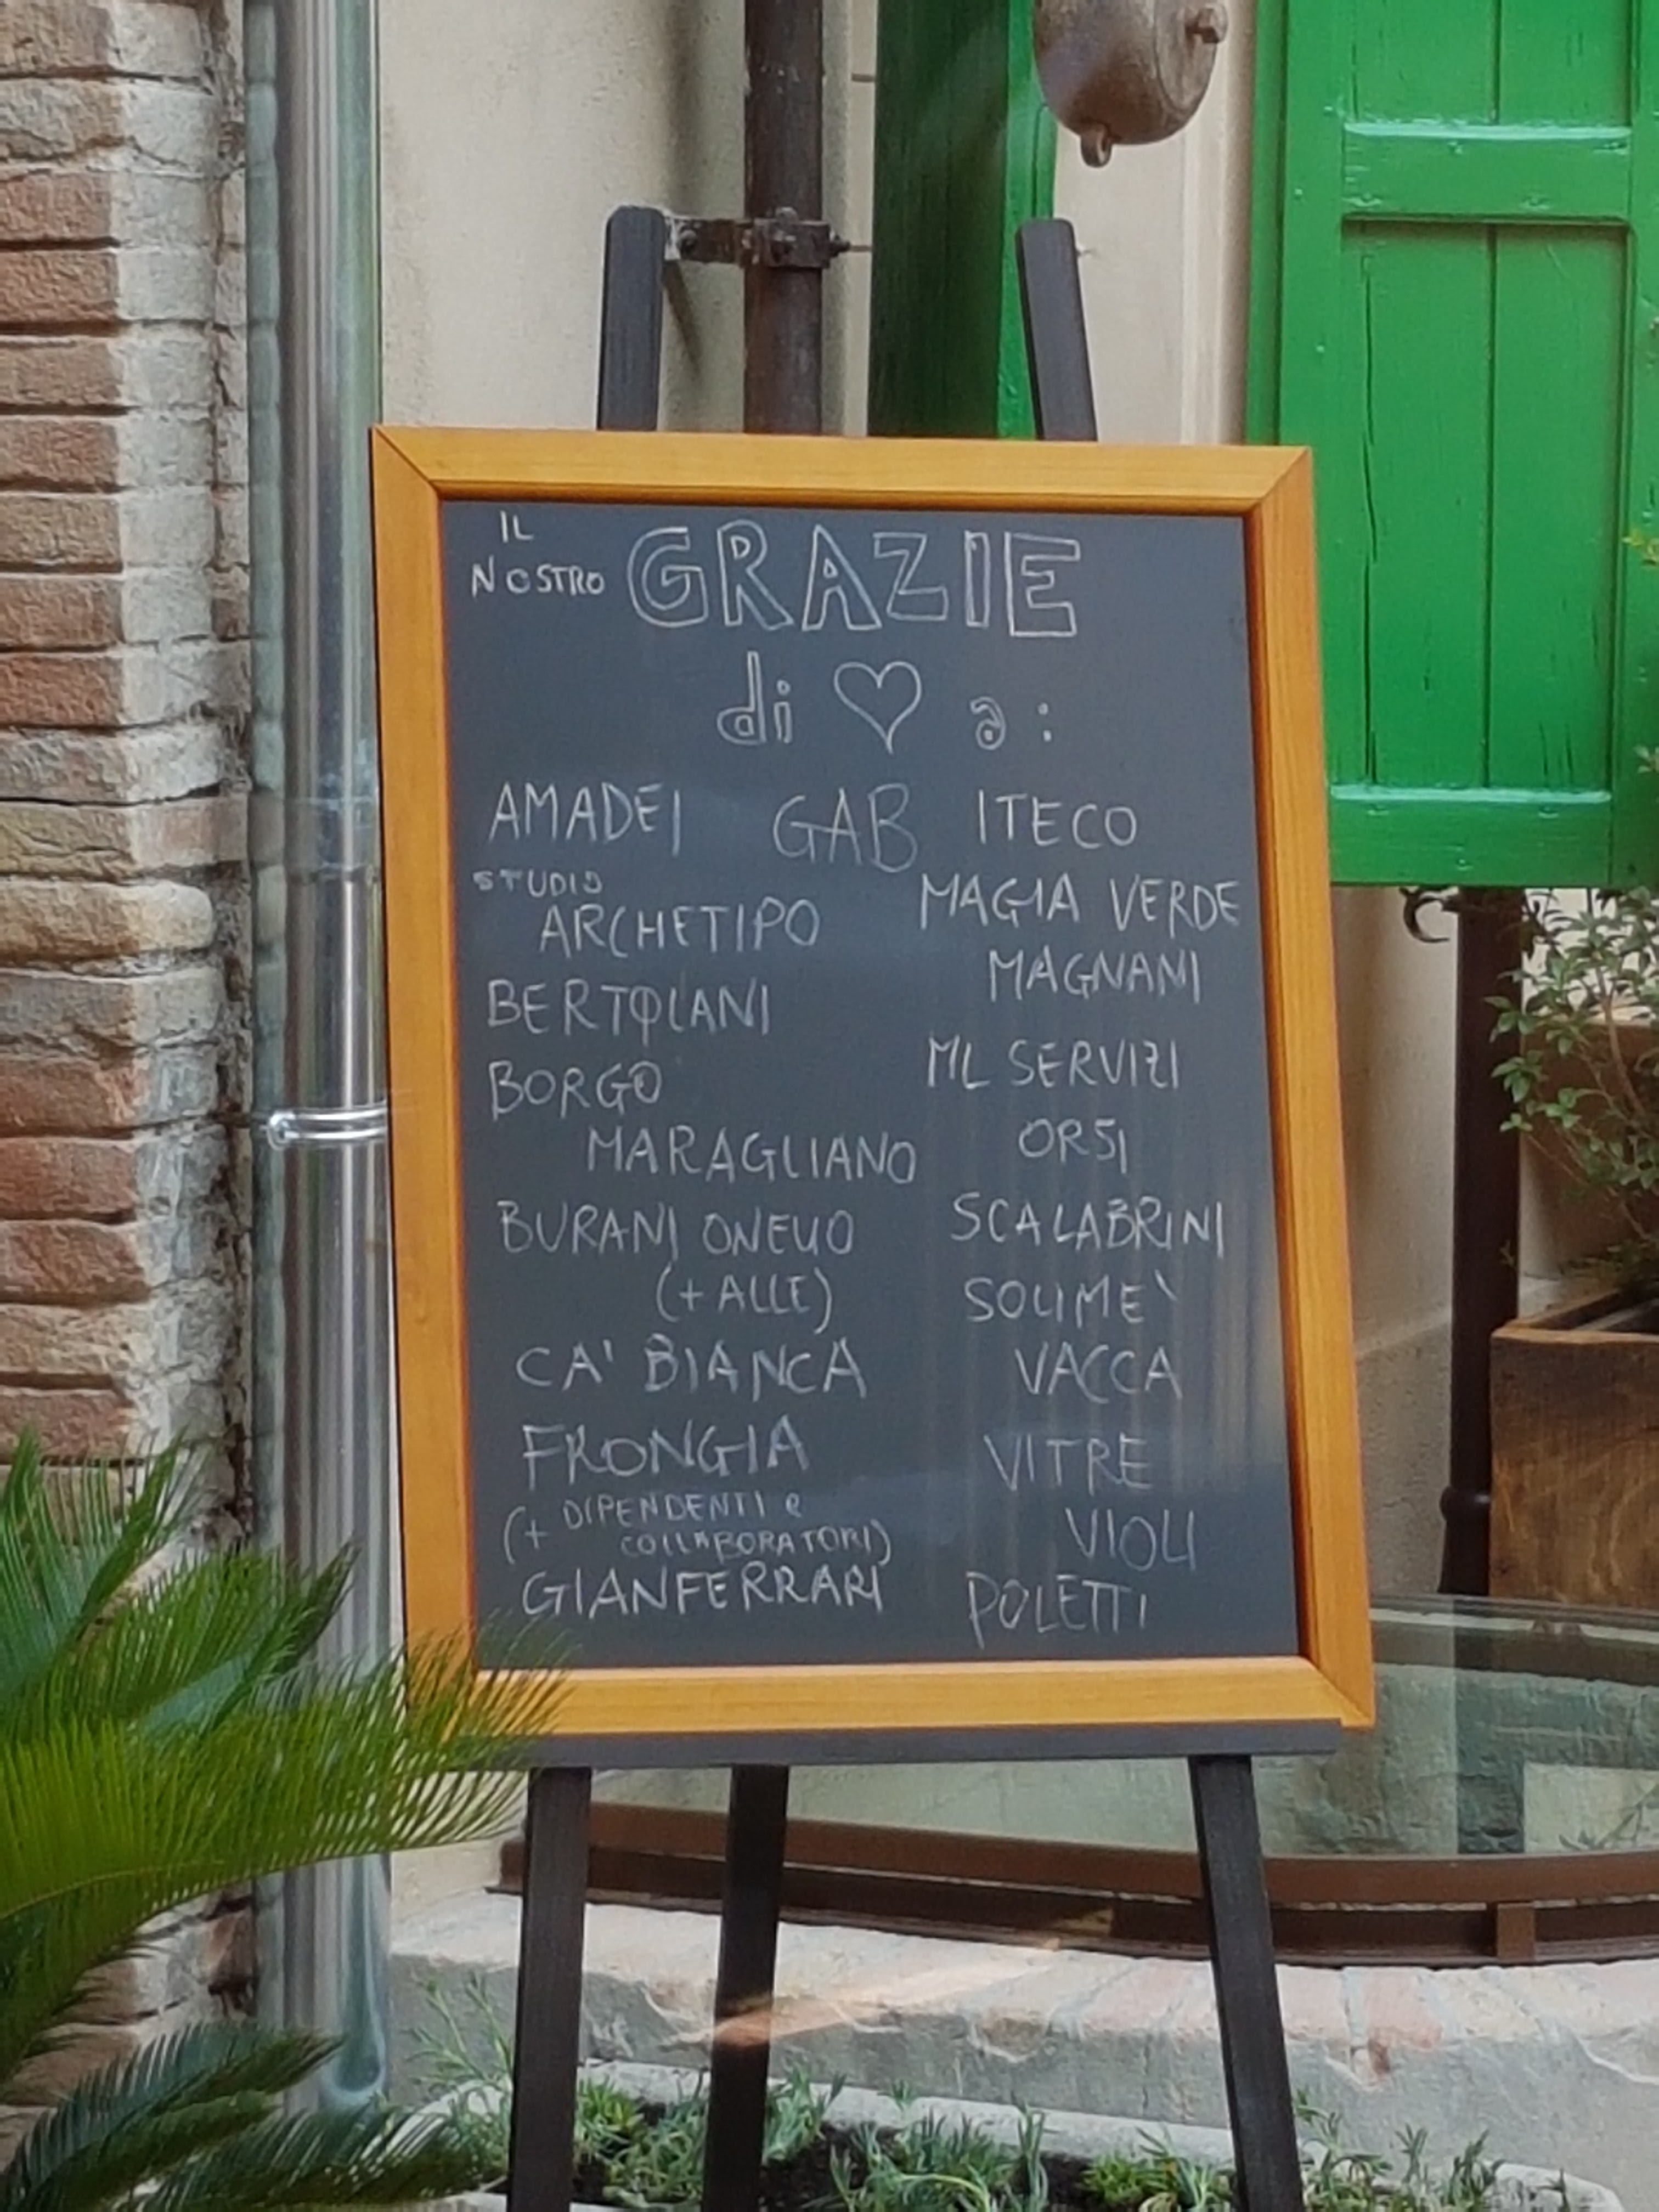 IL
NOSTRO GRAZIE
di ♡ a:
AMADEI
STUDIO
ARCHETIPO
BERTOLANI
BORGO
MARAGLIANO
BURANI ONELIO
(+ ALLE)
CA' BIANCA
FRONGIA
(+ DIPENDENTI e
COLLABORATORI)
GIANFERRARI
GAB
ITECO
MAGIA VERDE
MAGNANI
ML SERVIZI
ORSI
SCALABRINI
SOLIME`
VACCA
VITRE
VIOLI
POLETTI